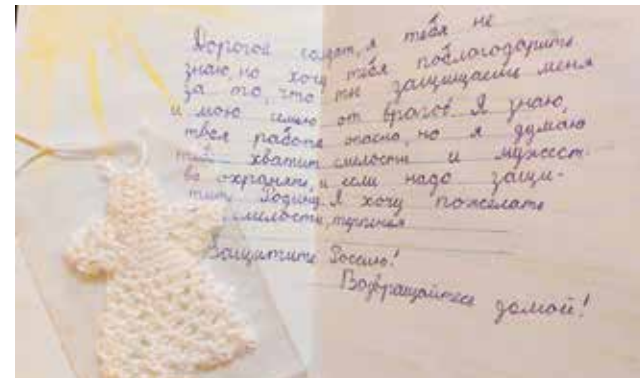 Дорогой солдат, я тебя не
знаю, но хочу тебя поблагодарить
за то, что ты защищаешь меня
и мою семью от врагов. Я знаю,
твоя работа опасна, но я думаю
хватит смелости и мужест-
ва охранять, и если надо защи-
тить Родину. Я хочу пожелать
смелости, терпения
Защитите Россию!
Возвращайтесь домой!